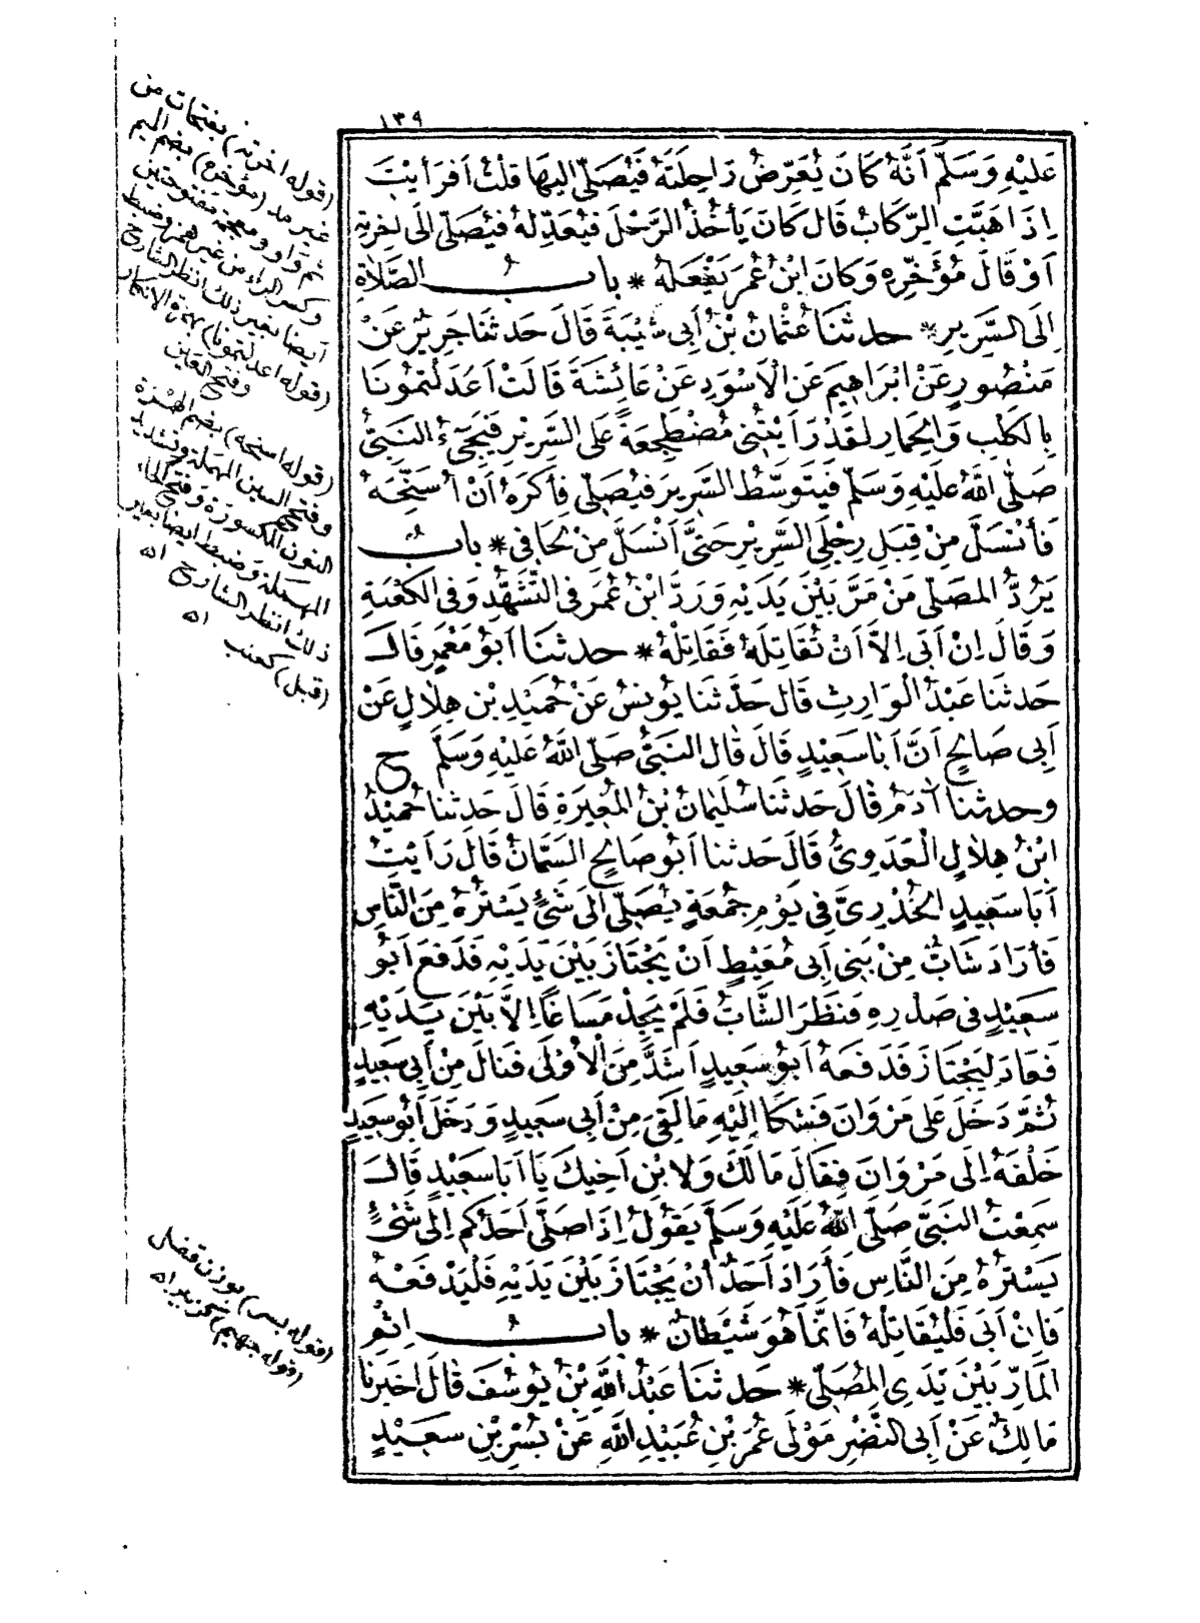 ١٣٩
عَلَيْهِ وَسَلَّمَ اَنَّهُ كَانَ يُعَرِّضُ رَاحِلَتَهُ فَيُصَلِّى اِلَيْهَا قُلْتُ اَفَرَأَيْتَ
اِذَا هَبَّتِ الرِّكَابُ قَالَ كَانَ يَأْخُذُ الرَّحْلَ فَيُعَدِّلُهُ فَيُصَلِّى اِلَى اٰخِرَتِهِ
اَوْ قَالَ مُؤَخَّرِهِ وَكَانَ ابْنُ عُمَرَ يَفْعَلُهُ * بابُ الصَّلَاةِ
اِلَى السَّرِيرِ * حدثنا عُثْمَانُ بْنُ اَبِى شَيْبَةَ قَالَ حَدثنَا جَرِيْرٌ عَنْ
مَنْصُورٍ عَنْ اِبْرَاهِيمَ عَنِ الْاَسْوَدِ عَنْ عَائِشَةَ قَالَتْ اَعَدَلْتُمُونَا
بِالكَلْبِ وَالحِمَارِ لَقَدْ رَاَيْتُنِى مُضْطَجِعَةً عَلَى السَّرِيْرِ فَيَجِىءُ النَّبِىُّ
صَلَّى اللهُ عَلَيْهِ وَسَلَّمَ فَيَتَوَسَّطُ السَّرِيرَ فَيُصَلِّى فَأَكْرَهُ اَنْ اُسَنِّحَهُ
فَأَنْسَلُّ مِنْ قِبَلِ رِجْلَىِ السَّرِيْرِ حَتَّى اَنْسَلَّ مِنْ لِحَافِى * بابُ
يَرُدُّ المُصَلِّى مَنْ مَرَّ بَيْنَ يَدَيْهِ وَرَدَّ ابْنُ عُمَرَ فى التَّشَهُّدِ وَفى الكَعْبَةِ
وَقَالَ اِنْ اَبَى اِلَّا اَنْ تُقَاتِلَهُ فَقَاتِلْهُ * حدثنا اَبُو مَعْمَرٍ قَالَ
حَدثنَا عَبْدُ الْوَارِثِ قَالَ حَدَّثَنا يُونُسُ عَنْ حُمَيْدِ بْنِ هِلَالٍ عَنْ
اَبِى صَالِحٍ اَنَّ اَبَا سَعِيْدٍ قَالَ قَالَ النَّبِىُّ صَلَّى اللهُ عَلَيْهِ وَسَلَّمَ ح
وحدثنا اٰدَمُ قَالَ حَدثنَا سُلَيْمَانُ بْنُ المُغِيرَةِ قَالَ حَدثنا حُمَيْدُ
ابْنُ هِلَالٍ الْعَدَوِىُّ قَالَ حَدثنا اَبُو صَالِحٍ السَّمَّانُ قَالَ رَاَيْتُ
اَبَا سَعِيدٍ الخُدْرِىَّ فِى يَوْمِ جُمُعَةٍ يُصَلِّى اِلَى شَىْءٍ يَسْتُرُهُ مِنَ النَّاسِ
فَأَرَادَ شَابٌّ مِنْ بَنِى اَبِى مُعَيْطٍ اَنْ يَجْتَازَ بَيْنَ يَدَيْهِ فَدَفَعَ اَبُو
سَعِيْدٍ فى صَدْرِهِ فَنَظَرَ الشَّابُّ فَلَمْ يَجِدْ مَسَاغًا اِلَّا بَيْنَ يَدَيْهِ
فَعَادَ لِيَجْتَازَ فَدَفَعَهُ اَبُو سَعِيدٍ اَشَدَّ مِنَ الْاُوْلَى فَنَالَ مِنْ اَبِى سَعِيدٍ
ثُمَّ دَخَلَ عَلَى مَرْوَانَ فَشَكَا اِلَيْهِ مَا لَقِىَ مِنْ اَبِى سَعِيدٍ وَدَخَلَ اَبُو سَعِيدٍ
خَلْفَهُ اِلَى مَرْوَانَ فَقَالَ مَا لَكَ وَلِابْنِ اَخِيكَ يَا اَبَا سَعِيْدٍ قَالَ
سَمِعْتُ النَّبِىَّ صَلَّى اللهُ عَلَيْهِ وَسَلَّمَ يَقُولُ اِذَا صَلَّى اَحَدُكُمْ اِلَى شَىْءٍ
يَسْتُرُهُ مِنَ النَّاسِ فَأَرَادَ اَحَدٌ اَنْ يَجْتَازَ بَيْنَ يَدَيْهِ فَلْيَدْفَعْهُ
فَاِنْ اَبَى فَلْيُقَاتِلْهُ فَاِنَّمَا هُوَ شَيْطَانٌ * بابُ اِثْمِ
المَارِّ بَيْنَ يَدَىِ المُصَلِّى * حَدثنَا عَبْدُ اللهِ بْنُ يُوسُفَ قَالَ اَخبَرنَا
مَالِكٌ عَنْ اَبِى النَّضْرِ مَوْلَى عُمَرَ بْنِ عُبَيْدِ اللهِ عَنْ بُسْرِ بْنِ سَعِيْدٍ
(قوله اخرته) بفتحات من
غير مد (مؤخره) بضم الميم
ثم واو ومعجمة مفتوحتين
وكسر الراء من غير همز وضبط
ايضا بغير ذلك انظر الشارح
(قوله اعدلتمونا) بهمزة الانكار
وفتح العين
(قوله اسنحه) بضم الهمزة
وفتح السين المهملة وتشديد
النون المكسورة وفتح الحاء
المهملة وضبط ايضا بغير
ذلك انظر الشارح اه
(قبل) كعنب اه
(قوله بسر) بوزن قفل
(قوله جهيم) كزبير اه